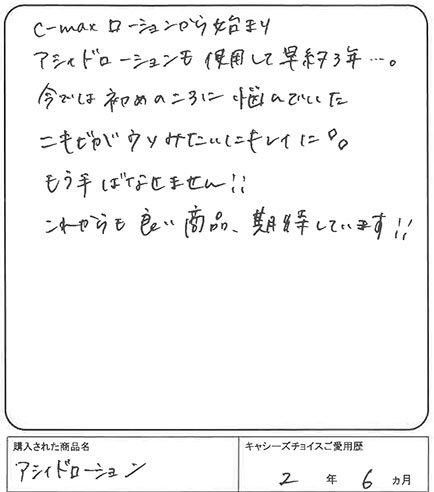 c-maxローションから始まり
アシィドローションも使用して早約3年…。
今では初めのころに悩んでいた
ニキビがウソみたいにキレイに。。
もう手ばなせません!!
これからも良い商品、期待しています!!
購入された商品名
アシィドローション
キャシーズチョイスご愛用歴
2年6ヵ月